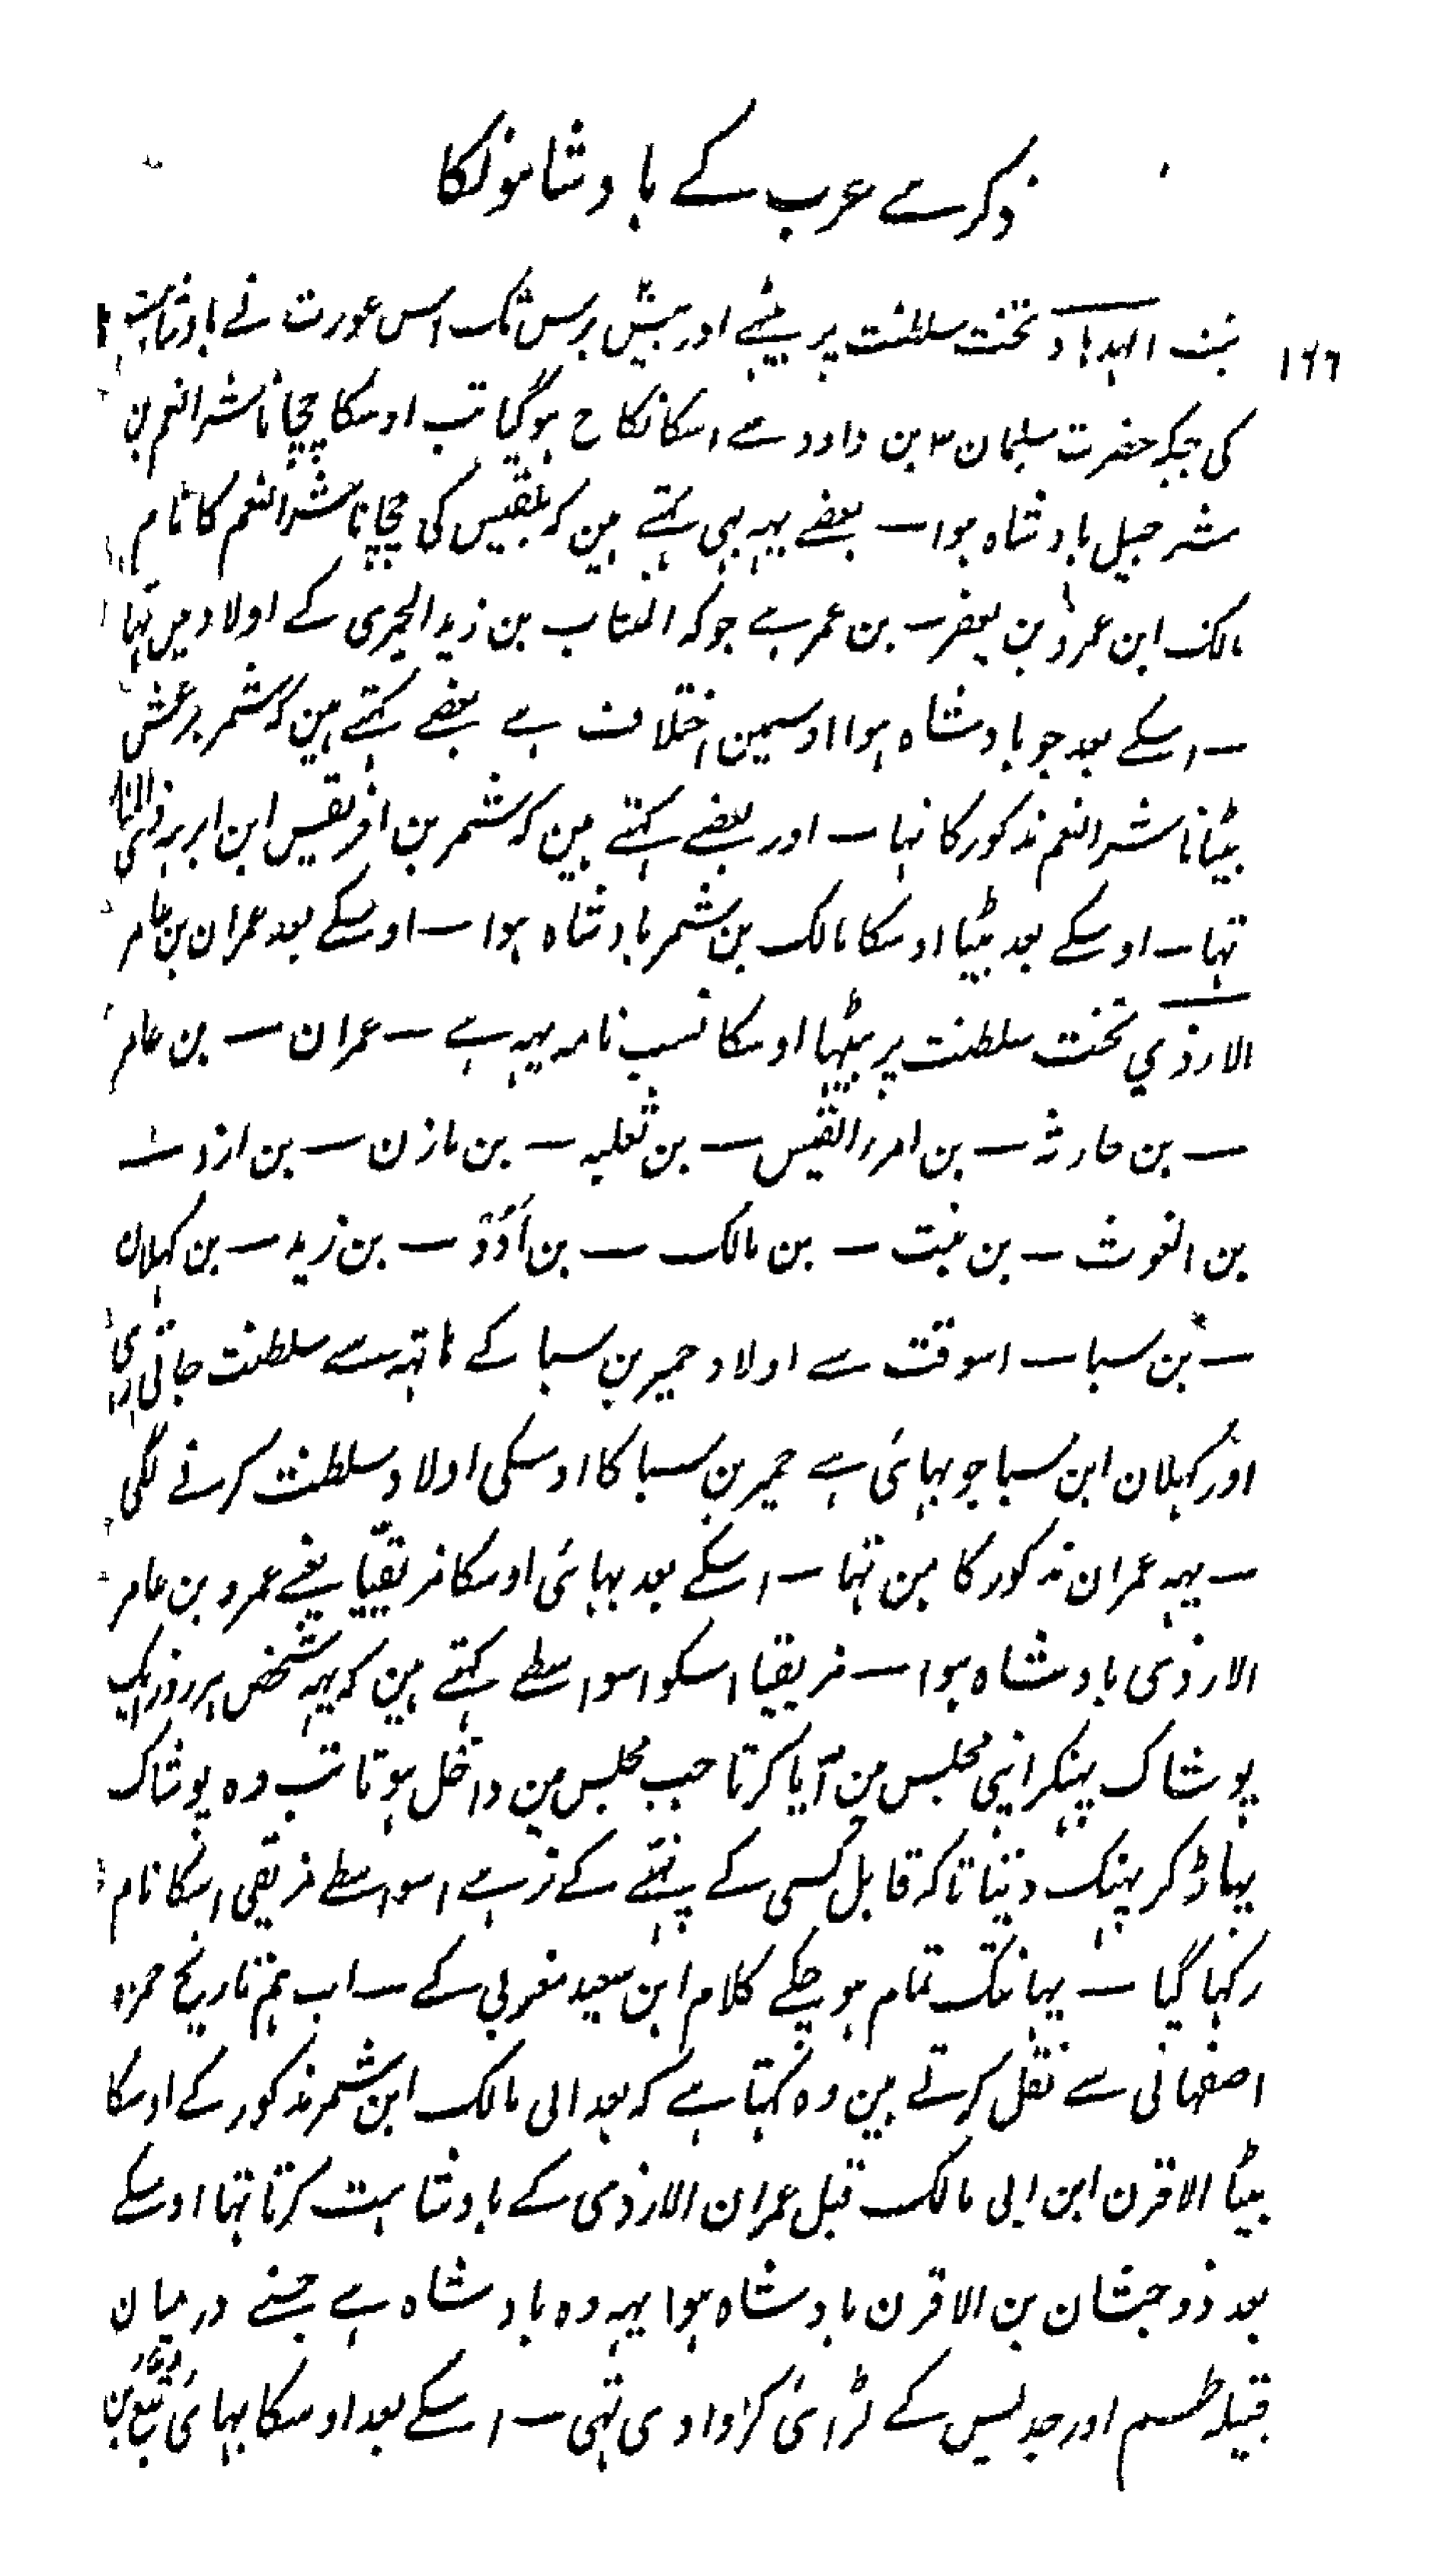 ذکر ہے عرب کے بادشاہونکا
۱۶۶
بنت الہدہاد تخت سلطنت پر بیٹھے اور بیس برس تک اس عورت نے بادشاہت
کی جبکہ حضرت سلیمان بن داود سے اسکا نکاح ہوگیا تب اوسکا چچا ناشر النعم بن
شرجیل بادشاہ ہوا ۔ بعضے یہہ بہی کہتے ہین کہ بلقیس کی چچا ناشر النعم کا نام
مالک ابن عمرو بن یعفر ۔ بن عمر ہے جوکہ المتاب بن زید الحمیری کے اولاد میں تہا
۔ اسکے بعد جو بادشاہ ہوا اوسمین اختلاف ہے بعضے کہتے ہین کہ شمر برعش
بیٹا ناشر النعم مذکور کا تہا ۔ اور بعضے کہتے ہین کہ شمر بن افریقیس ابن ابرہہ ذی المنار
تہا ۔ اوسکے بعد بیٹا اوسکا مالک بن شمر بادشاہ ہوا ۔ اوسکے بعد عمران بن عامر
الازذي تخت سلطنت پر بیٹہا اوسکا نسب نامہ یہہ ہے ۔ عمران ۔ بن عامر
۔ بن حارثہ ۔ بن امرء القیس ۔ بن ثعلبہ ۔ بن مازن ۔ بن ازد ۔
بن الغوث ۔ بن نبت ۔ بن مالک ۔ بن اُدَدْ ۔ بن زید ۔ بن کہلان
۔ بن سبا ۔ اسوقت سے اولاد حمیر بن سبا کے ہاتہہ سے سلطنت جاتی رہی
اور کہلان ابن سبا جو بہائی ہے حمیر بن سبا کا اوسکی اولاد سلطنت کرنے لگی
۔ یہہ عمران مذکور کاہن تہا ۔ اسکے بعد بہائی اوسکا مزیقیا یعنے عمرو بن عامر
الازذی بادشاہ ہوا ۔ مزیقیا اسکو اسواسطے کہتے ہین کہ یہہ شخص ہر روز ایک
پوشاک پہنکر اپنی مجلس مین آیا کرتا جب مجلس مین داخل ہوتا تب وہ پوشاک
پہاڑ کر پہینک دیتا تاکہ قابل کسی کے پہننے کے نرہے اسواسطے مزیقی اسکا نام
رکہا گیا ۔ یہانتک تمام ہو چکے کلام ابن سعید مغربی کے ۔ اب ہم تاریخ حمزہ
اصفہانی سے نقل کرتے ہین وہ کہتا ہے کہ بعد ابی مالک ابن شمر مذکور کے اوسکا
بیٹا الاقرن ابن ابی مالک قبل عمران الازذی کے بادشاہت کرتا تہا اوسکے
بعد ذو حبشان بن الاقرن بادشاہ ہوا یہہ وہ بادشاہ ہے جسنے درمیان
قبیلہ طسم اور جدیس کے لڑائی کروا دی تہی ۔ اسکے بعد اوسکا بہائی تبع بن